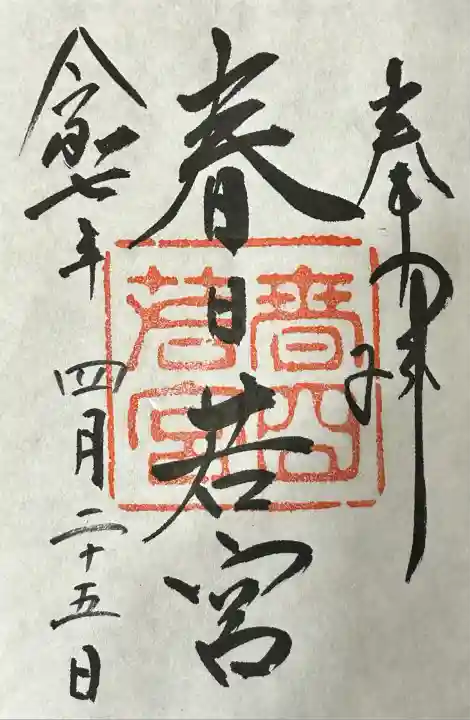 奉拝
春日若宮
春日
若宮
令和七年四月二十五日